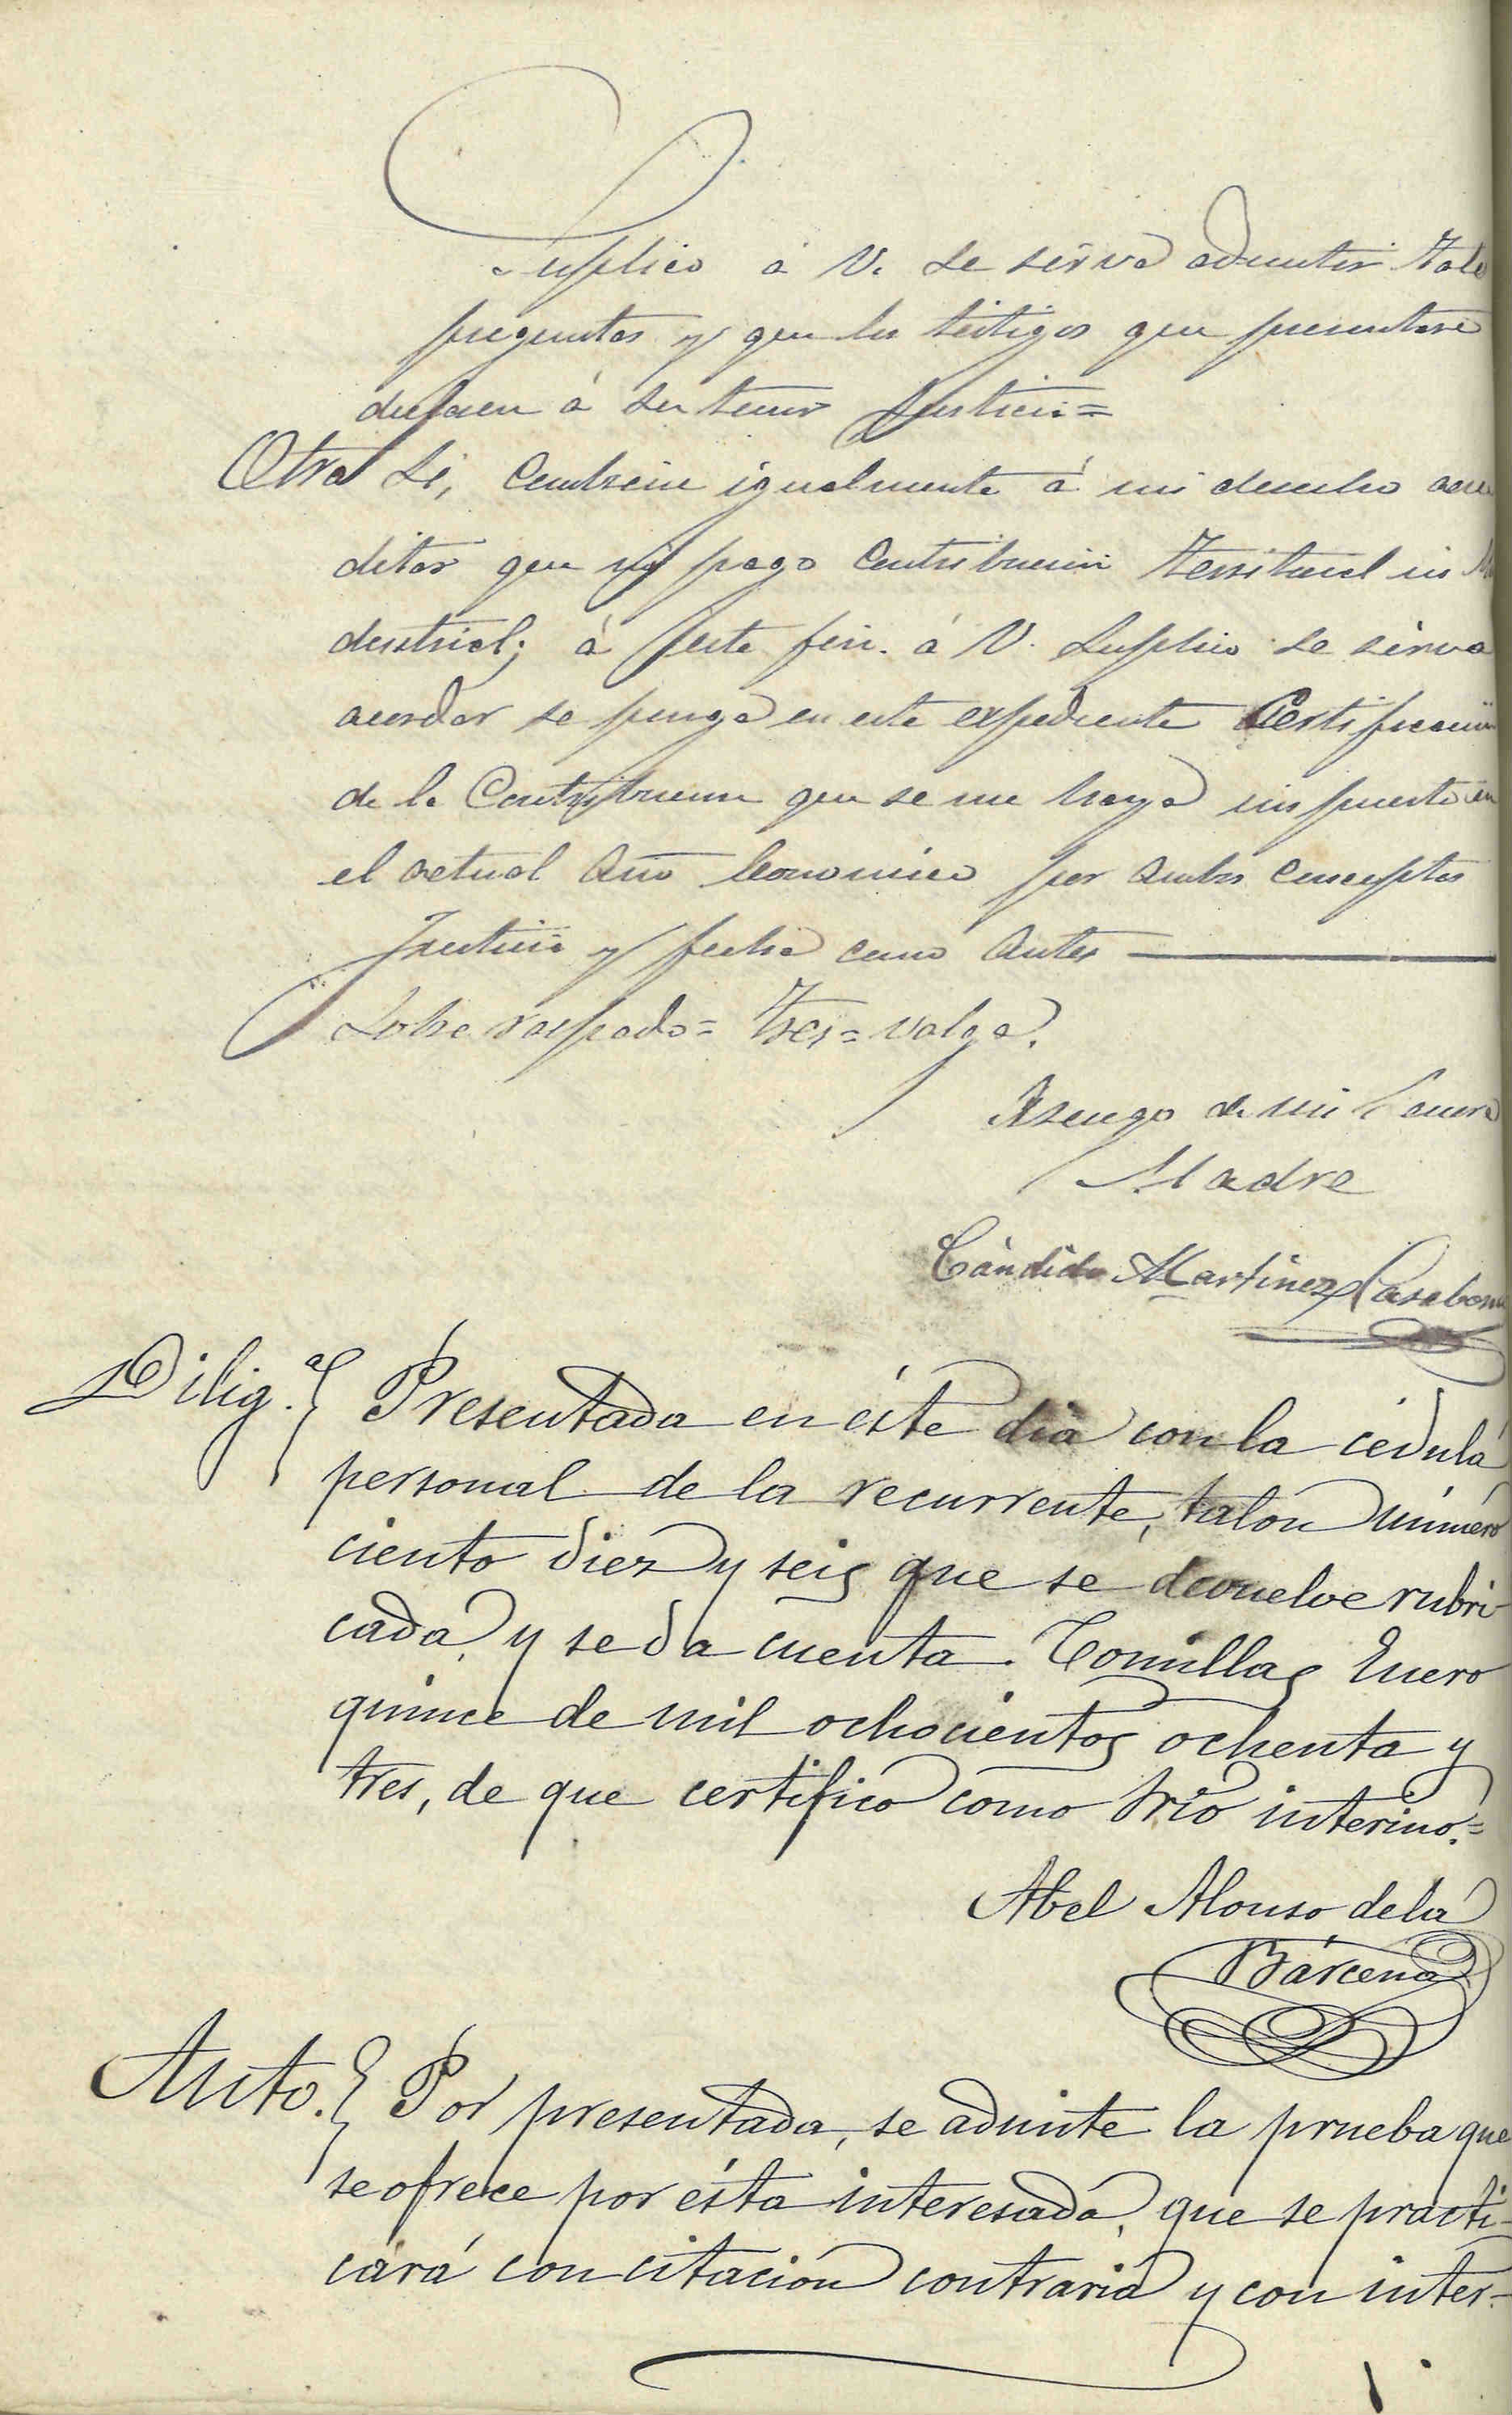 Suplico á V. se sirva admitir tale
preguntas y que los testigos que presentaré
declaren á su tenor Justicia=
Otro Si, Conviene igualmente á mi derecho acre
ditar que no pago Contribucion Territorial ni In
dustrial; á este fin. á V. Suplico se sirva
acordar se ponga en este expediente Certificacion
de la Contribucion que se me haya impuesto en
el actual año Economico por ambos conceptos
Justicia y fecha como antes
Sobre raspado= tres= valga.
A ruego de mi Señora
Madre
Cándido Martinez Casabona
Dilig.ª Presentada en éste dia con la cédula
personal de la recurrente, talon número
ciento diez y seis que se devuelve rubri-
cada, y se da cuenta. Comillas Enero
quince de mil ochocientos ochenta y
tres, de que certifico como Srio interino.=
Abel Alonso de la
Bárcena
Auto. Por presentada, se admite la prueba que
se ofrece por ésta interesada, que se practi-
cará con citacion contraria y con inter-